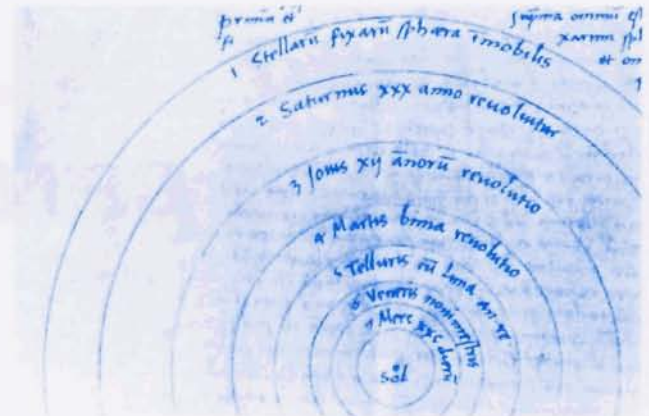 prima et
suprema omniū est
xarum sph
et om
1 Stellarū fixarū sphæra īmobilis
2 Saturnus xxx anno reuoluitur
3 Iouis xij annorū reuolutio
4 Martis bima reuolutio
5 Telluris cū Luna an re
6 Veneris nonimestris
7 Merc xxc dierū
Sol